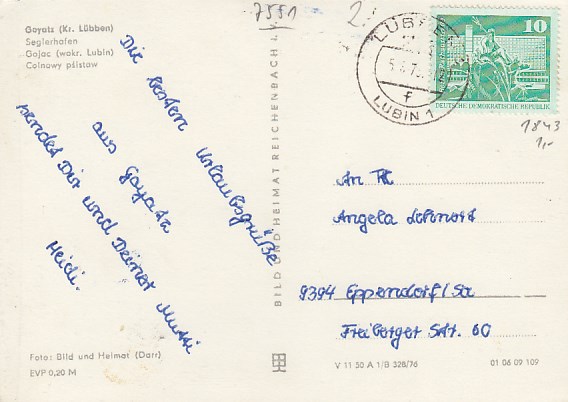 Goyatz (Kr. Lübben)
Seglerhafen
Gojac (wokr. Lubin)
Cołnowy pśistaw
7551
2.-
Die besten Urlaubsgrüße
aus Goyatz
sendet Dir und Deiner Mutti
Heidi.
Foto: Bild und Heimat (Darr)
EVP 0,20 M
BILD UND HEIMAT REICHENBACH I. V.
LÜBBEN
f
LUBIN 1
10
DEUTSCHE DEMOKRATISCHE REPUBLIK
1843
1,-
An
Angela Schmidt
9394 Eppendorf/Sa
Freiberger Str. 60
V 11 50 A 1/B 328/76
01 06 09 109